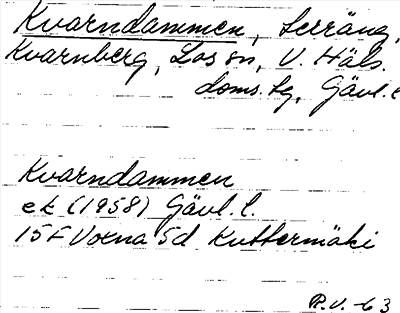 Kvarndammen, Lerräng,
Kvarnberg, Los sn, V. Häls.
doms. Lg, Gävl. l
Kvarndammen
ek (1958) Gävl. l.
15F Voxna 5d Kuttermäki
R.V. -63